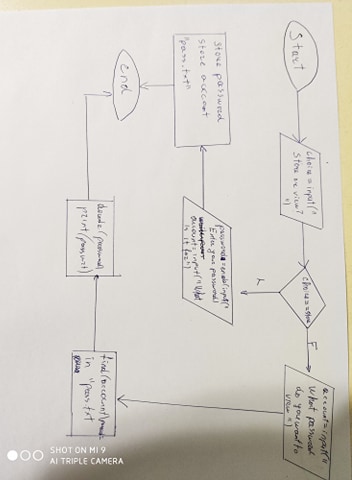 Start
choice = input("
Store or view?
")
choice==store
T
F
password=encode(input("
Enter your password)
account=input("What
is it for?")
store password
store account
"pass.txt"
end
account=input("
What password
do you want to
view?")
find(account)
in "pass.txt
decode(password)
print(password)
SHOT ON MI 9
AI TRIPLE CAMERA